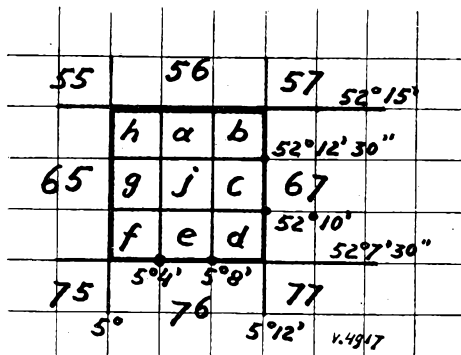 55 56 57
52°15'
h a b
52°12'30"
65 g j c 67
52°10'
f e d
52°7'30"
5°4' 5°8'
75 76 77
5° 5°12'
V.4917